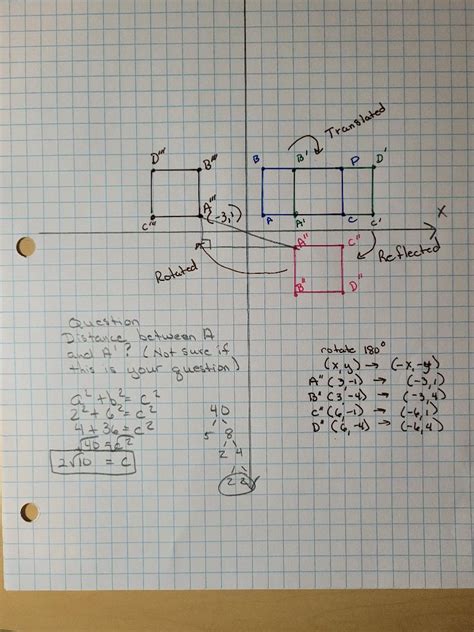 Translated
D''' B''' B B' P D'
A''' (-3,1)
C''' A A' C C' X
A'' C'' Reflected
Rotated
B'' D''
Question
Distance between A
and A'? (Not sure if
this is your question)
a² + b² = c²
2² + 6² = c²
4 + 36 = c²
√40 = c²
2√10 = c
40
5 8
2 4
2 2
rotate 180°
(x,y) → (-x,-y)
A'' (3,-1) → (-3,1)
B'' (3,-4) → (-3,4)
C'' (6,-1) → (-6,1)
D'' (6,-4) → (-6,4)